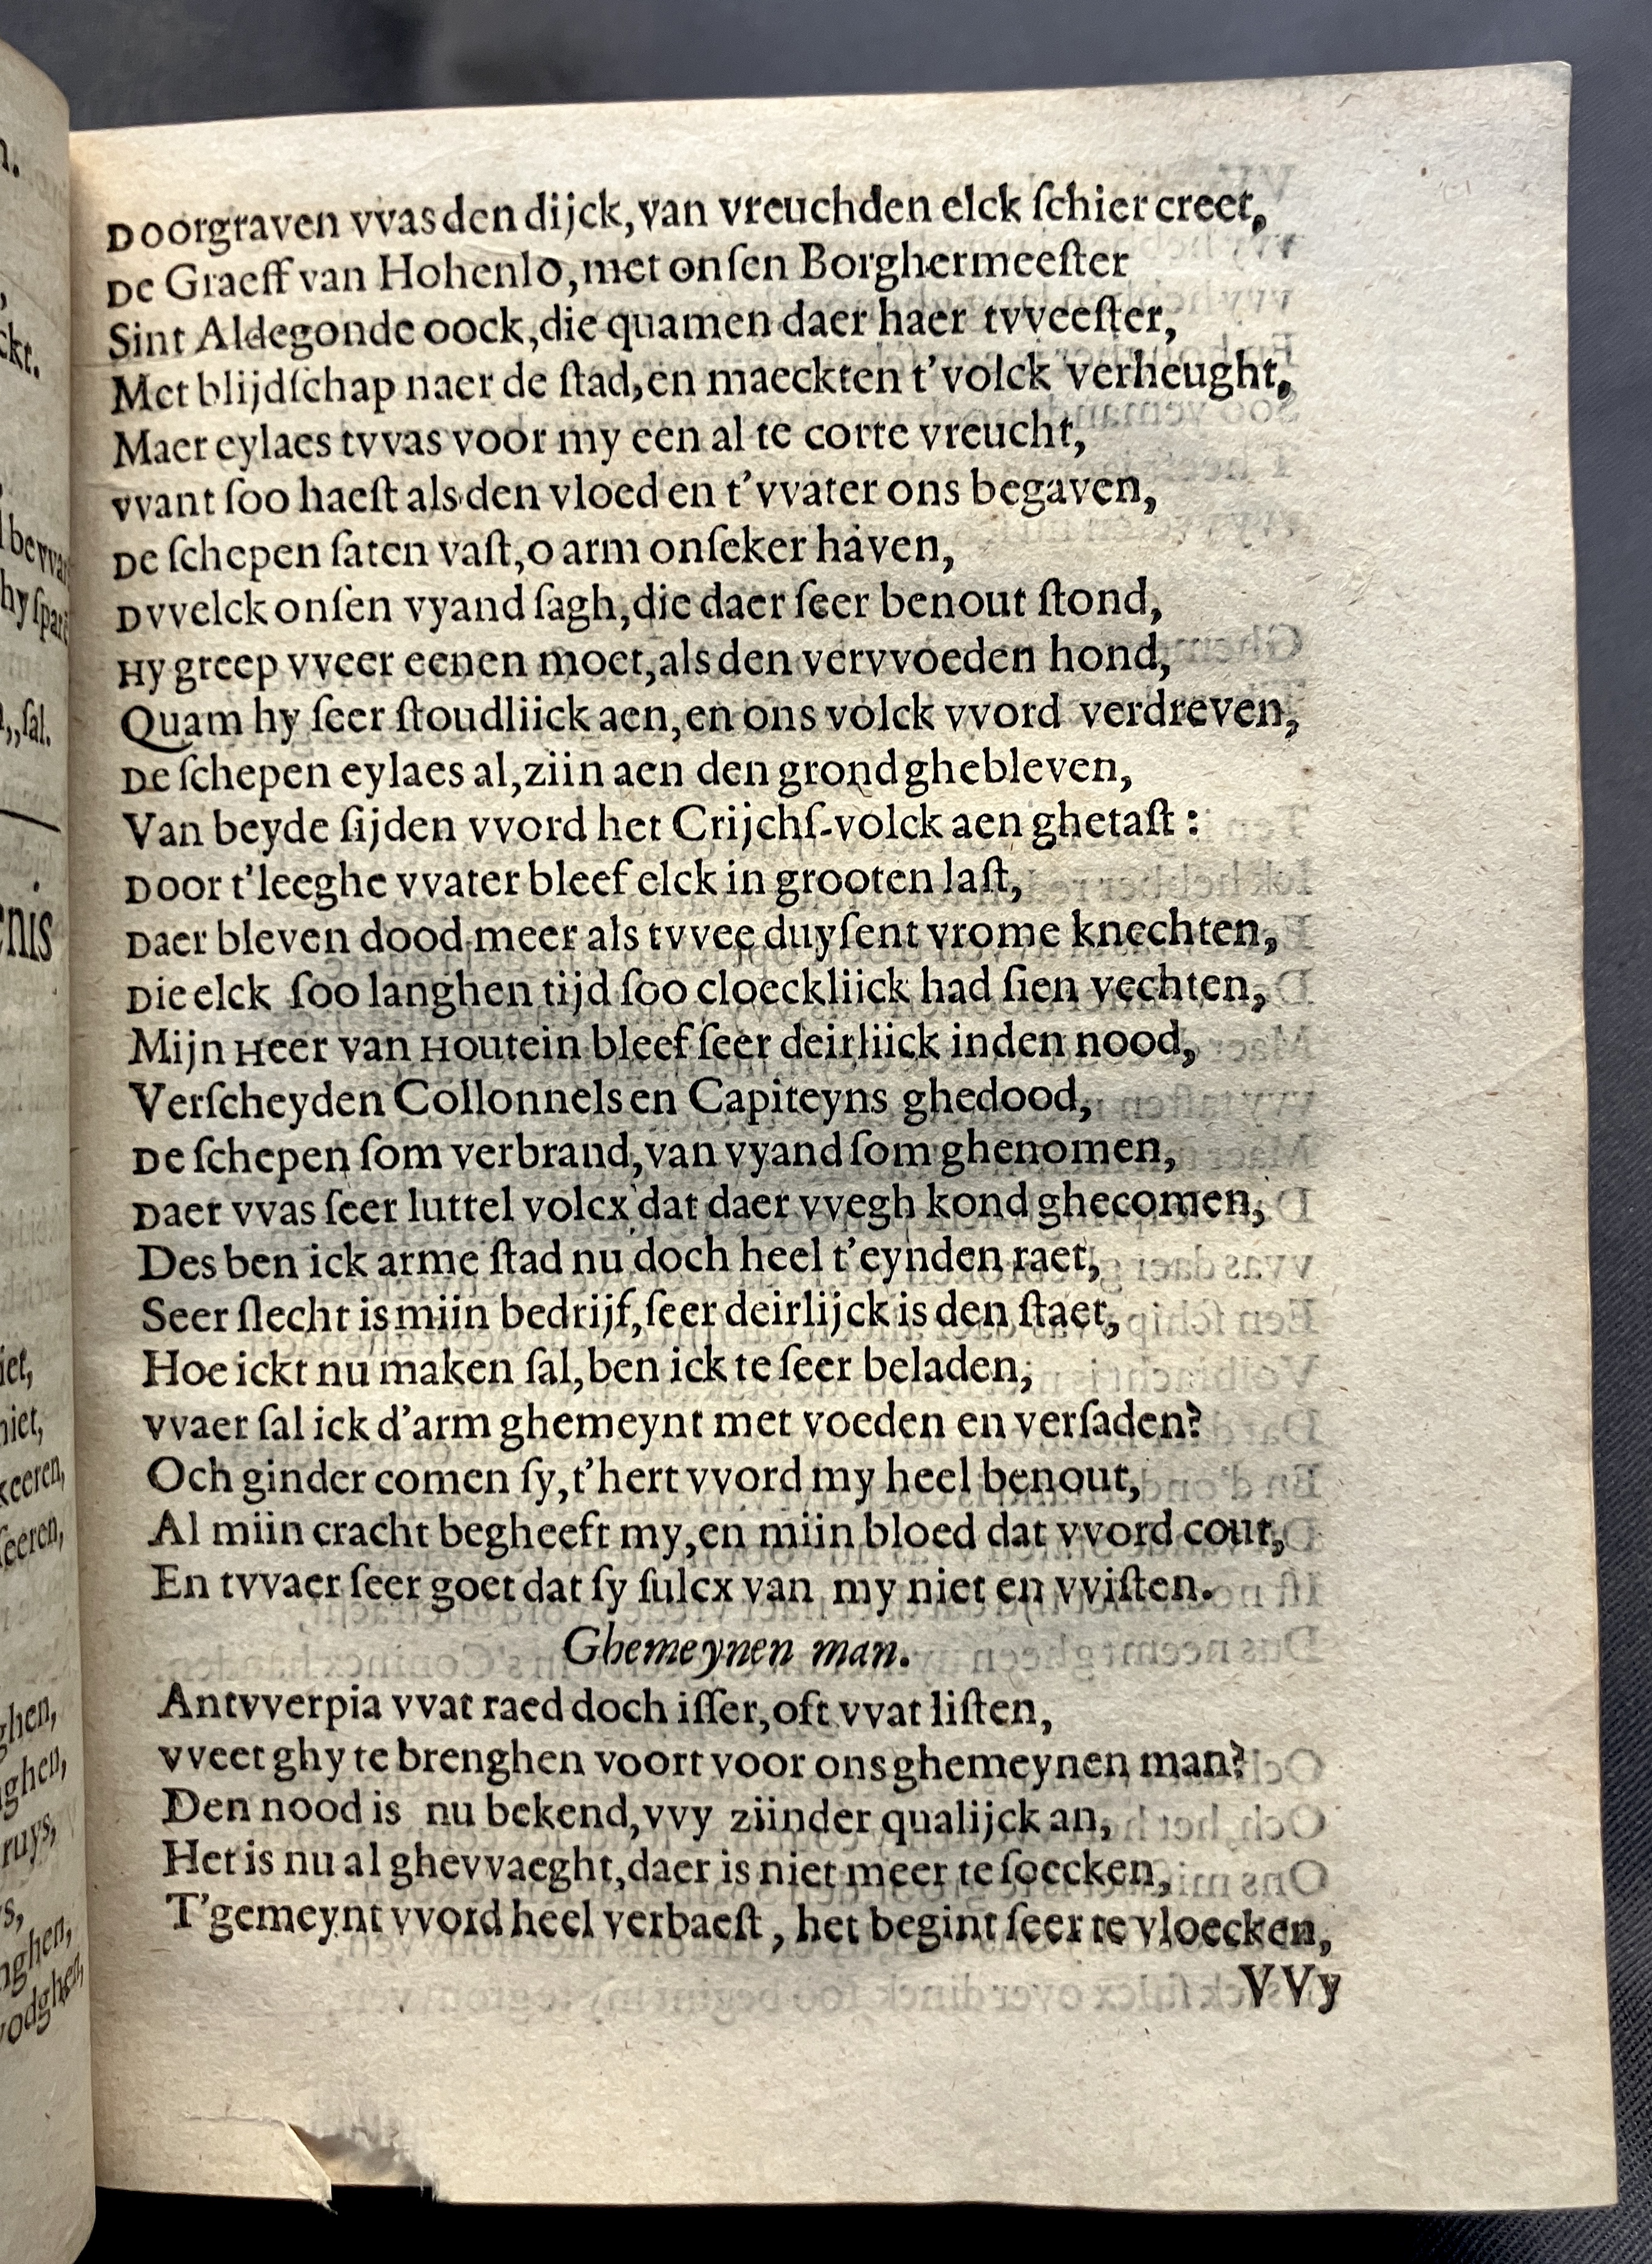 Doorgraven vvas den dijck, van vreuchden elck ſchier creet,
De Graeff van Hohenlo, met onſen Borghermeeſter
Sint Aldegonde oock, die quamen daer haer tvveeſter,
Met blijdſchap naer de ſtad, en maeckten t'volck verheught,
Maer eylaes tvvas voor my een al te corte vreucht,
vvant ſoo haeſt als den vloed en t'vvater ons begaven,
De ſchepen ſaten vaſt, o arm onſeker haven,
Dvvelck onſen vyand ſagh, die daer ſeer benout ſtond,
Hy greep vveer eenen moet, als den vervvoeden hond,
Quam hy ſeer ſtoudliick aen, en ons volck vvord verdreven,
De ſchepen eylaes al, ziin aen den grond ghebleven,
Van beyde ſijden vvord het Crijchſ-volck aen ghetaſt :
Door t'leeghe vvater bleef elck in grooten laſt,
Daer bleven dood meer als tvvee duyſent vrome knechten,
Die elck ſoo langhen tijd ſoo cloeckliick had ſien vechten,
Mijn Heer van Houtein bleef ſeer deirliick inden nood,
Verſcheyden Collonnels en Capiteyns ghedood,
De ſchepen ſom verbrand, van vyand ſom ghenomen,
Daer vvas ſeer luttel volcx dat daer vvegh kond ghecomen,
Des ben ick arme ſtad nu doch heel t'eynden raet,
Seer ſlecht is miin bedrijf, ſeer deirlijck is den ſtaet,
Hoe ickt nu maken ſal, ben ick te ſeer beladen,
vvaer ſal ick d'arm ghemeynt met voeden en verſaden?
Och ginder comen ſy, t'hert vvord my heel benout,
Al miin cracht begheeft my, en miin bloed dat vvord cout,
En tvvaer ſeer goet dat ſy ſulcx van my niet en vviſten.
Ghemeynen man.
Antvverpia vvat raed doch iſſer, oft vvat liſten,
vveet ghy te brenghen voort voor ons ghemeynen man?
Den nood is nu bekend, vvy ziinder qualijck an,
Het is nu al ghevvaeght, daer is niet meer te ſoecken,
T'gemeynt vvord heel verbaeſt, het begint ſeer te vloecken,
VVy